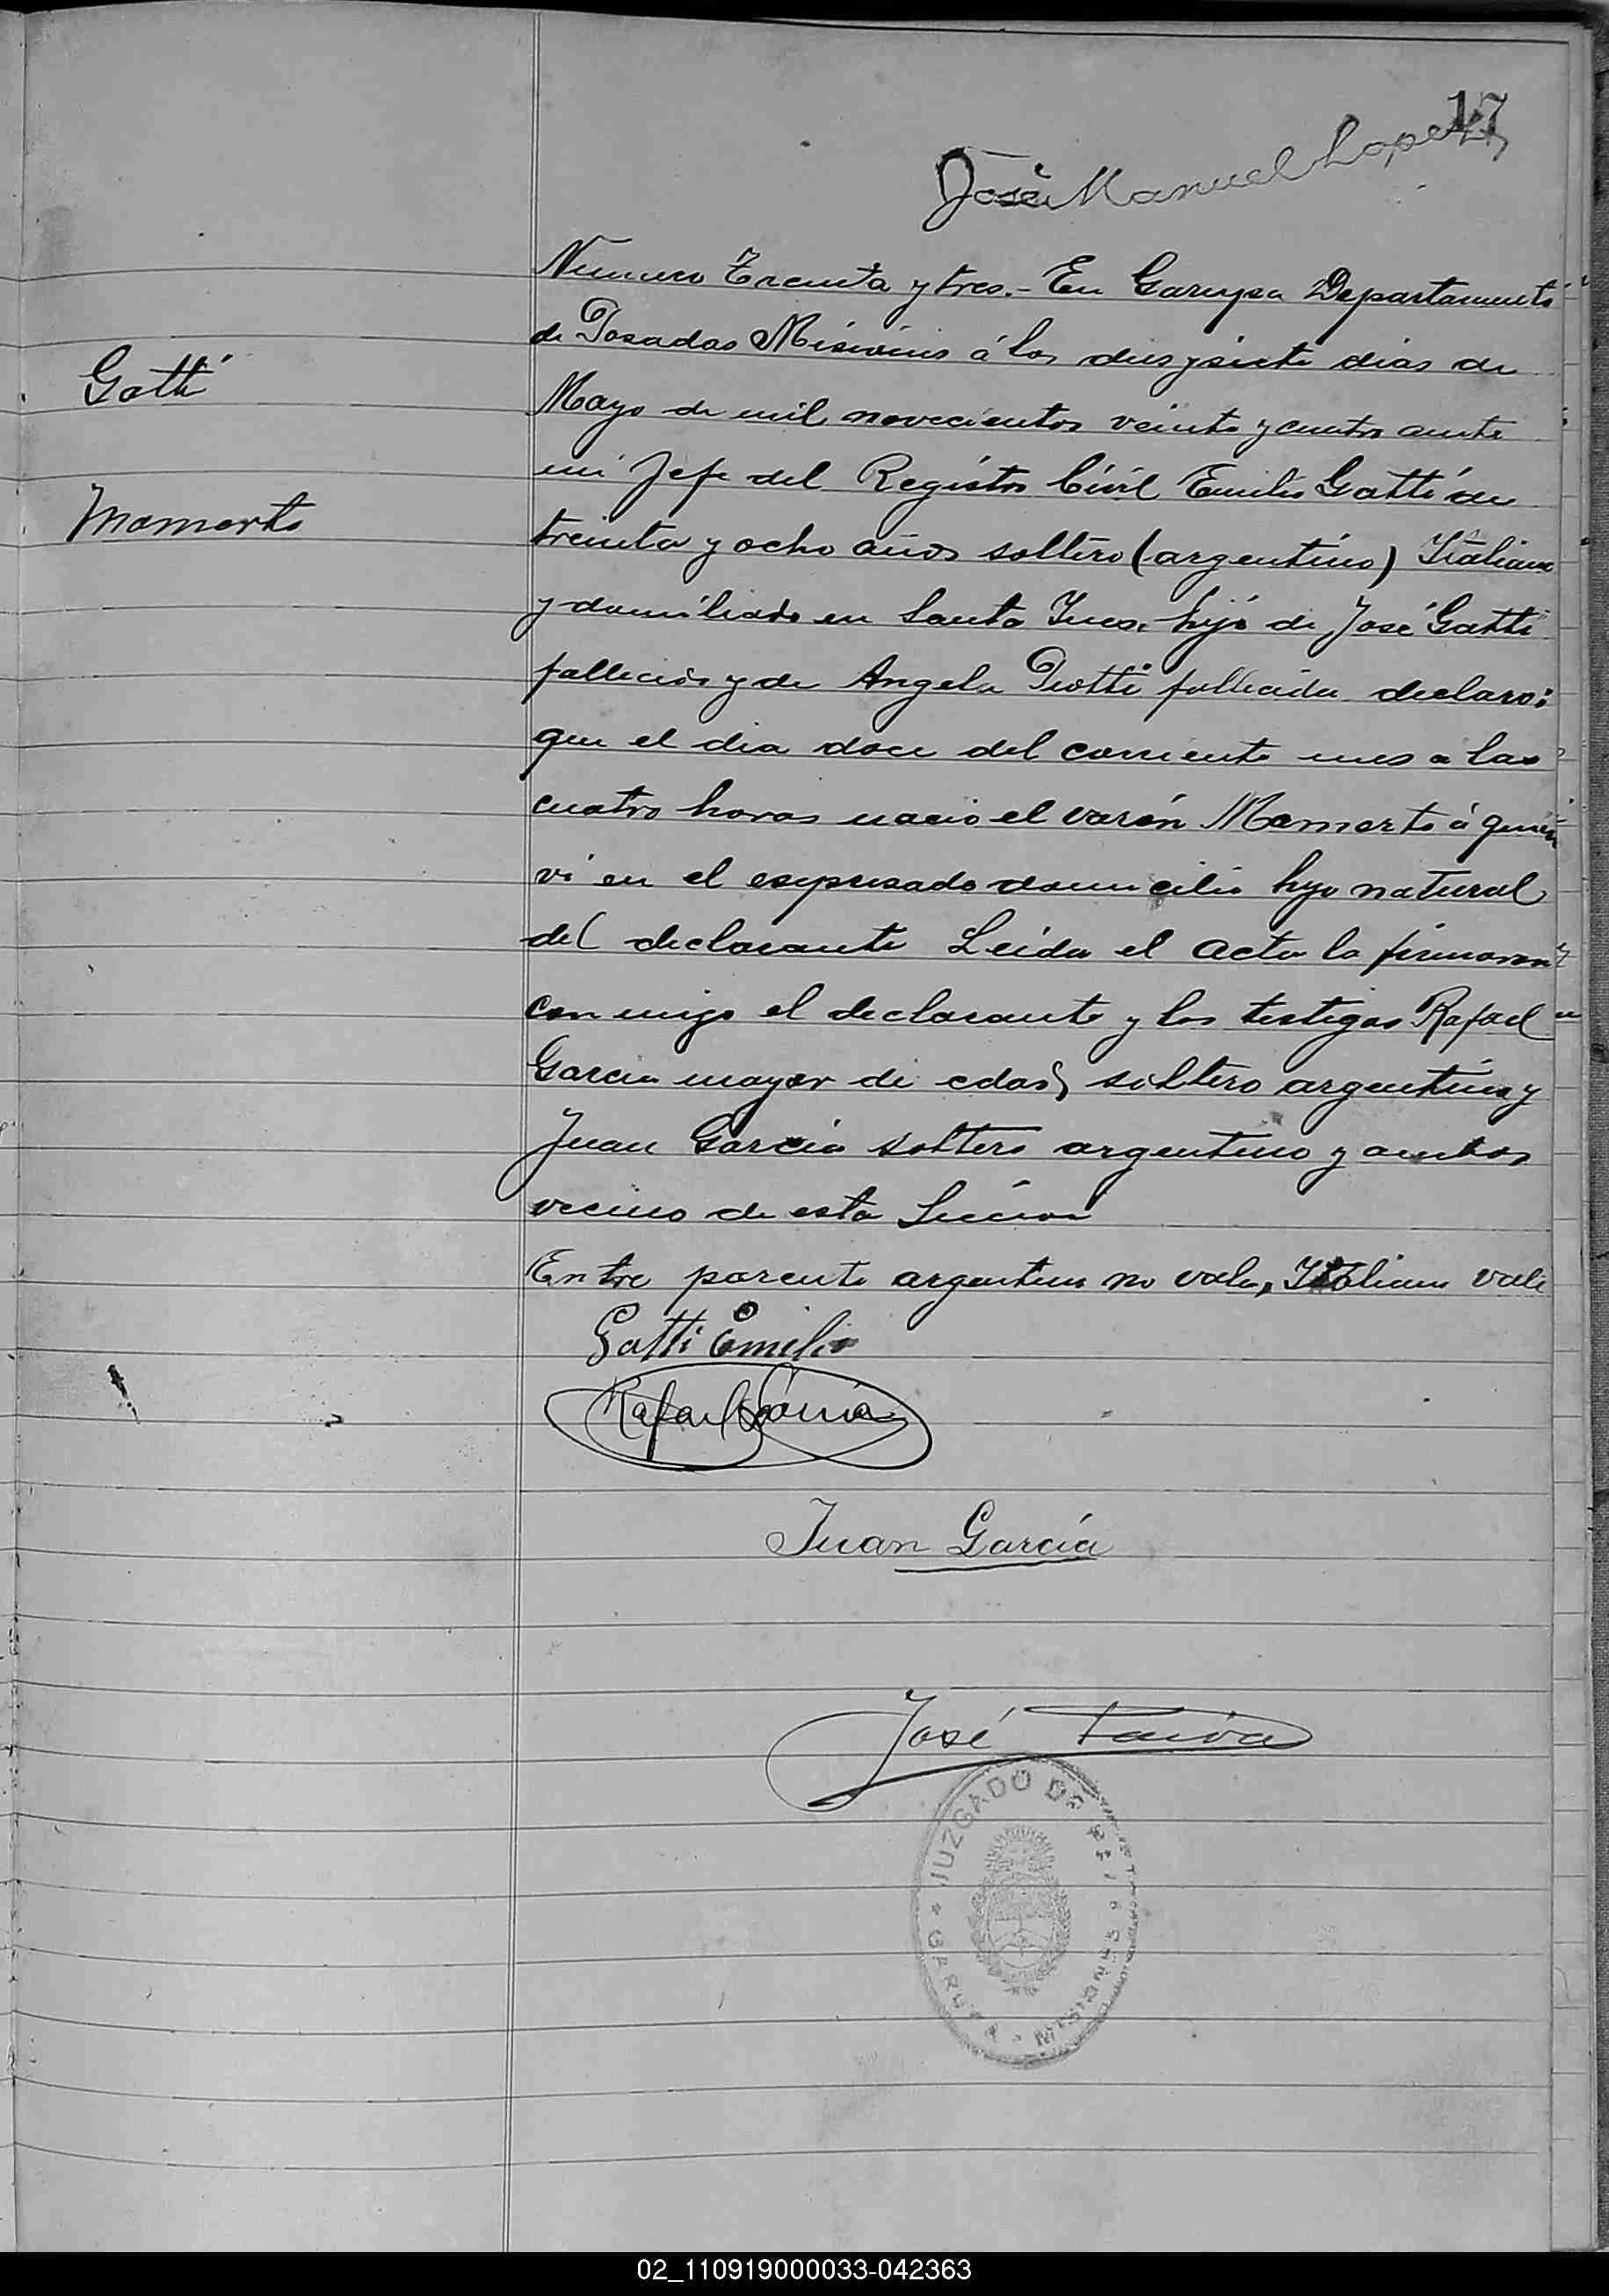 17
José Manuel Lopez
Numero Treinta y tres.- En Garupa Departamento
de Posadas Misiones á los dies y siete dias de
Gatti
Mayo de mil novecientos veinte y cuatro ante
mi Jefe del Registro Civil Emilio Gatti de
Mamerto
treinta y ocho años soltero (argentino) Italiano
y domiliado en Santa Ines. hijo de José Gatti
fallecido y de Angela Piotti fallecida declaro:
que el dia doce del corriente mes a las
cuatro horas nacio el varón Mamerto á quien
vi en el espresado domicilio hijo natural
del declarante Leida el acta la firmaron
con migo el declarante y los testigos Rafael
Garcia mayor de edad, soltero argentino y
Juan Garcia soltero argentino y ambos
vecino de esta Seccion
Entre parente argentino no vale, Italiano vale
Gatti Emilio
Rafael Garcia
Juan García
José Paiva
JUZGADO DE PAZ
GARUPA
MISIONES
02_110919000033-042363